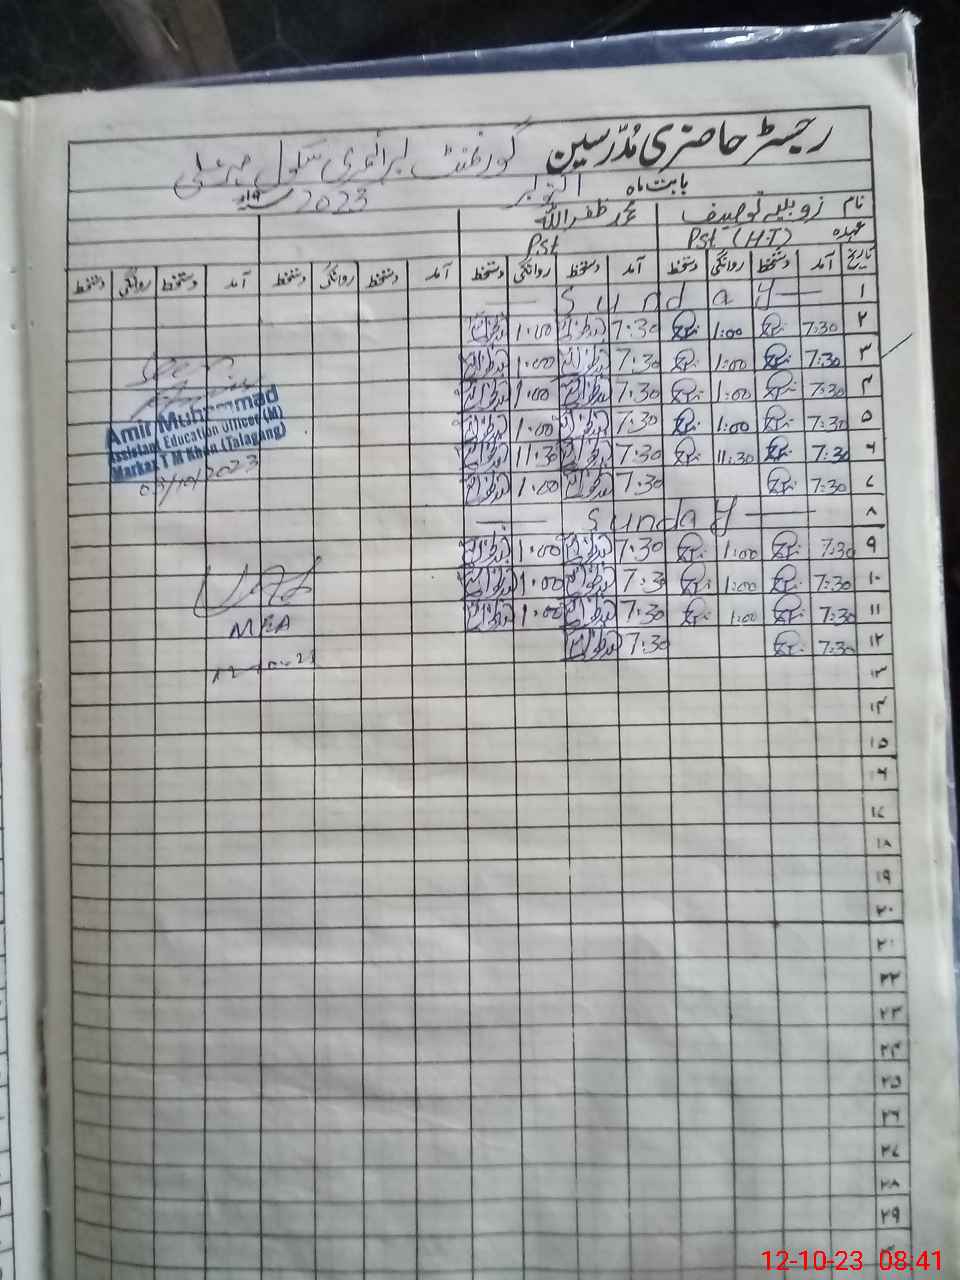 رجسٹر حاضری مُدرّسین گورنمنٹ پرائمری سکول
بابت ماہ اکتوبر 2023
نام زوبیہ توصیف محمد ظفراللہ
عہدہ Pst (H.T) Pst
تاریخ آمد دستخط روانگی دستخط آمد دستخط روانگی دستخط آمد دستخط روانگی دستخط آمد دستخط روانگی دستخط
۱ Sunday
۲ 7:30 1:00 7:30 1:00
۳ 7:30 1:00 7:30 1:00
۴ 7:30 1:00 7:30 1:00
۵ 7:30 1:00 7:30 1:00
۶ 7:30 11:30 7:30 11:30
۷ 7:30 7:30 1:00
۸ Sunday
۹ 7:30 1:00 7:30 1:00
۱۰ 7:30 1:00 7:30 1:00
۱۱ 7:30 1:00 7:30 1:00
۱۲ 7:30 7:30
۱۳
۱۴
۱۵
۱۶
۱۷
۱۸
۱۹
۲۰
۲۱
۲۲
۲۳
۲۴
۲۵
۲۶
۲۷
۲۸
۲۹
Amir Muhammad
Assistant Education Officer (M)
Markaz T M Khan (Talagang)
MEA
12-10-23
12-10-23 08:41